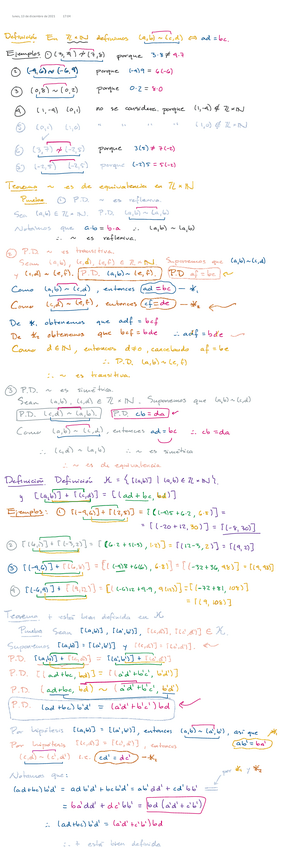 lunes, 15 de diciembre de 2025 17:00
Definición En ℤ×ℕ definimos (a,b)~(c,d) ⟺ ad=bc.
Ejemplos. ① (3,9)≁(7,8) porque 3·8≠9·7
② (-9,6)~(-6,4) porque
③ (0,8)~(0,2) porque 0·2=8·0
④ (1,-4) (0,1) no se consideran porque (1,-4)∉ℤ×ℕ
⑤ (0,1) (1,0) " " " (1,0)∉ℤ×ℕ
⑥ (3,7)≁(-2,5) porque 3(5)≠7(-2)
porque (-2)5=5(-2)
Teorema ~ es de equivalencia en ℤ×ℕ
Prueba ① P.D. ~ es reflexiva.
Sea (a,b)∈ℤ×ℕ. P.D. (a,b)~(a,b)
Notamos que a·b=b·a ∴ (a,b)~(a,b)
∴ ~ es reflexiva.
② P.D. ~ es transitiva.
Sean (a,b), (c,d), (e,f)∈ℤ×ℕ. Supongamos que (a,b)~(c,d)
y (c,d)~(e,f). P.D. (a,b)~(e,f) P.D. af=be
Como (a,b)~(c,d), entonces ad=bc —*₁
Como (c,d)~(e,f), entonces cf=de —*₂
De *₁ obtenemos que adf=bcf
De *₂ obtenemos que bcf=bde ∴ adf=bde
Como d∈ℕ, entonces d≠0, cancelando af=be
∴ P.D. (a,b)~(e,f)
∴ ~ es transitiva.
③ P.D. ~ es simétrica.
Sean (a,b), (c,d)∈ℤ×ℕ. Supongamos que (a,b)~(c,d)
P.D. (c,d)~(a,b). P.D. cb=da
Como (a,b)~(c,d), entonces ad=bc ∴ cb=da
∴ (c,d)~(a,b) ∴ ~ es simétrica
∴ ~ es de equivalencia.
Definición Definición 𝒦={[(a,b)] | (a,b)∈ℤ×ℕ}.
y [(a,b)]+[(c,d)]=[(ad+bc,bd)]
Ejemplos: ①
=[(-20+12,30)]=[(-8,30)]
②
③
④
=[(9,108)]
Teorema + está bien definida en 𝒦
Prueba Sean [(a,b)], [(a',b')], [(c,d)], [(c',d')]∈𝒦.
Supongamos [(a,b)]=[(a',b')] y [(c,d)]=[(c',d')].
P.D. [(a,b)]+[(c,d)]=[(a',b')]+[(c',d')]
P.D. [(ad+bc,bd)]=[(a'd'+b'c',b'd')]
P.D. (ad+bc,bd)~(a'd'+b'c',b'd')
P.D. (ad+bc)b'd'=(a'd'+b'c')bd
Por hipótesis [(a,b)]=[(a',b')], entonces (a,b)~(a',b'), así que
ab'=ba'
Por hipótesis [(c,d)]=[(c',d')], entonces
(c,d)~(c',d') i.e. cd'=dc' —*₂
Notamos que: por *₁ y *₂
(ad+bc)b'd'=adb'd'+bcb'd'=ab'dd'+cd'bb'
=ba'dd'+dc'bb'=bd(a'd'+c'b')
∴ (ad+bc)b'd'=(a'd'+c'b')bd
∴ + está bien definida